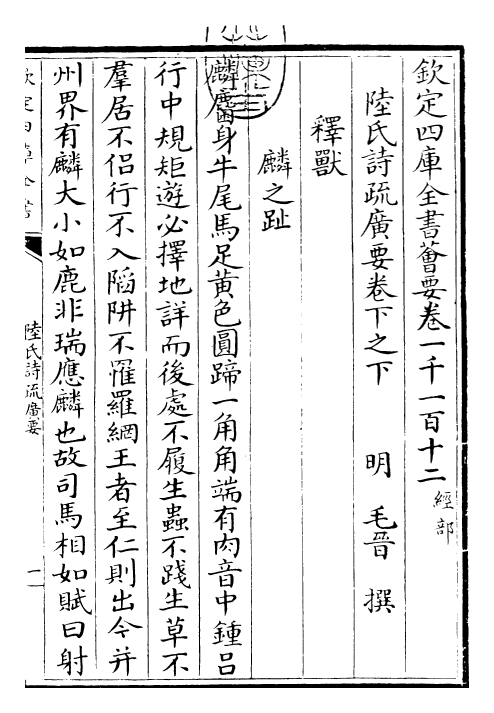 欽定四庫全書薈要卷一千一百十二 經部
陸氏詩疏廣要卷下之下 明 毛晉 撰
釋獸
麟之趾
麟麕身牛尾馬足黃色圓蹄一角角端有肉音中鍾呂
行中規矩遊必擇地詳而後處不履生蟲不踐生草不
羣居不侶行不入陷阱不罹羅網王者至仁則出今并
州界有麟大小如鹿非瑞應麟也故司馬相如賦曰射
欽定四庫全書
陸氏詩疏廣要
一